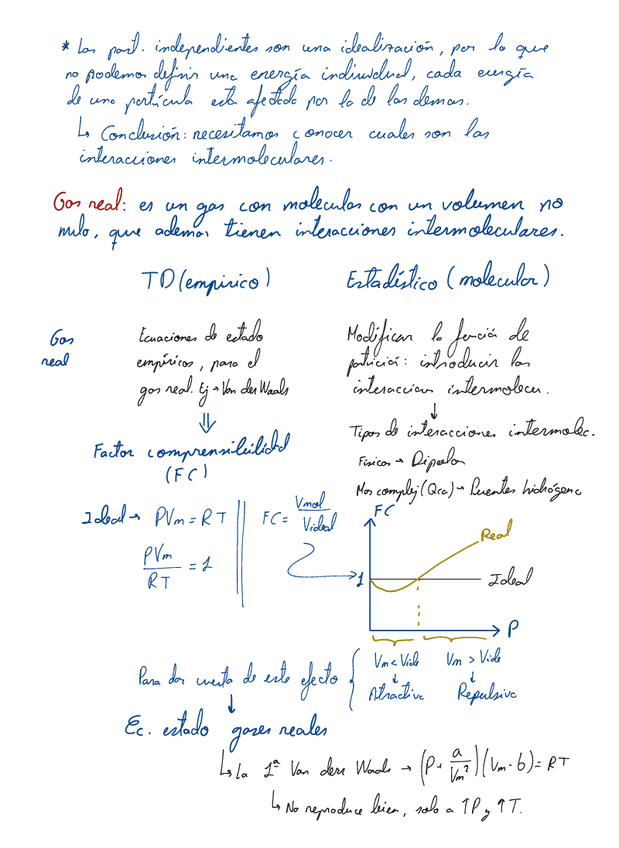 * Las part. independientes son una idealización, por lo que
no podemos definir una energía individual, cada energía
de una partícula esta afectada por la de las demas.
↳ Conclusión: necesitamos conocer cuales son las
interacciones intermoleculares.
Gas real: es un gas con moleculas con un volumen no
nulo, que ademas tienen interacciones intermoleculares.
TD (empirico)
Estadístico (molecular)
Gas
real
Ecuaciones de estado
empíricos, para el
gas real. Ej → Van der Waals
⇓
Factor comprensibilidad
(FC)
Modificar la función de
partición: introducir las
interaccion intermolecu.
↓
Tipos de interacciones intermolec.
Físicos → Dipolos
Mas complej (Qca) → Puentes hidrógeno
Ideal → PVm = RT
PVm / RT = 1
FC = Vmol / Videal
FC
1
Real
Ideal
P
Vm < Vide
↓
Atractiva
Vm > Vide
↓
Repulsiva
Para dar cuenta de este efecto
↓
Ec. estado gases reales
↳ La 1ª Van ders Waals → (P + a/Vm²)(Vm - b) = RT
↳ No reproduce bien, solo a ↑P y ↑T.